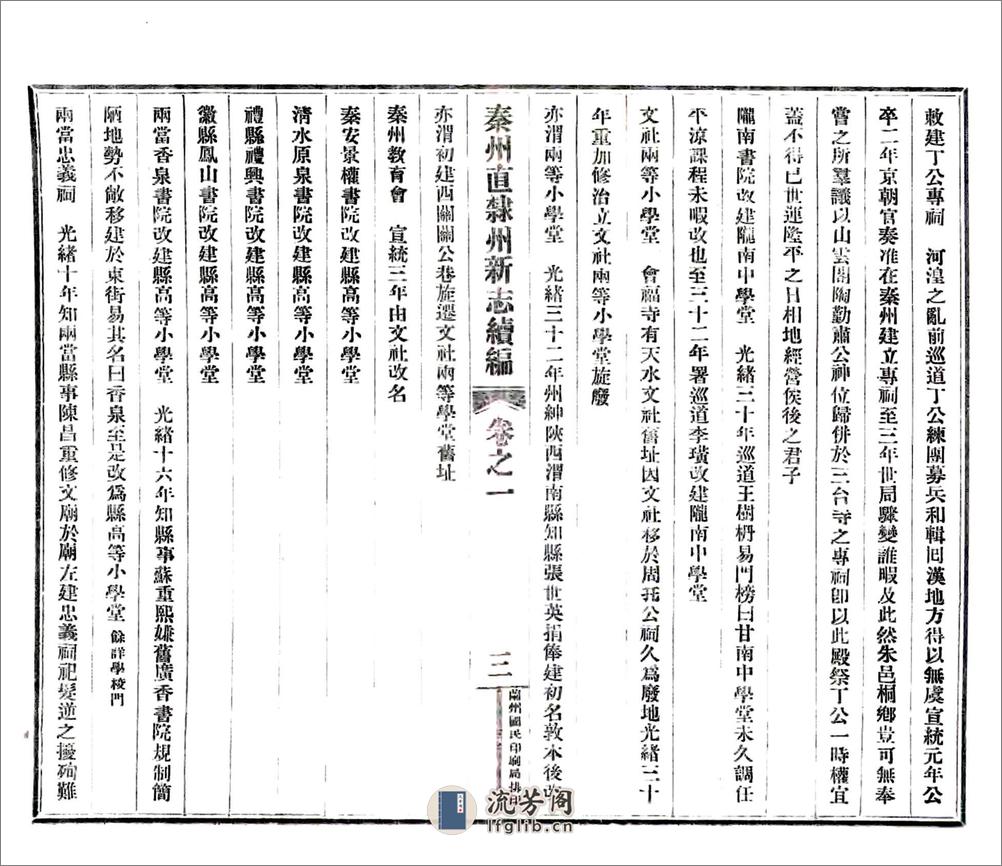 敕建丁公專祠　河湟之亂前巡道丁公練團募兵和輯回漢地方得以無虞宣統元年公
卒二年京朝官奏准在秦州建立專祠至三年世局驟變誰暇及此然朱邑桐鄉豈可無奉
嘗之所羣議以山雲閣陶勤肅公神位歸併於三台寺之專祠卽以此殿祭丁公一時權宜
蓋不得已世運隆平之日相地經營俟後之君子
隴南書院改建隴南中學堂　光緒三十年巡道王樹枬易門榜曰甘南中學堂未久調任
平涼課程未暇改也至三十二年署巡道李璜改建隴南中學堂
文社兩等小學堂　會福寺有天水文社舊址因文社移於周托公祠久爲廢地光緒三十
年重加修治立文社兩等小學堂旋廢
亦渭兩等小學堂　光緒三十二年州紳陝西渭南縣知縣張世英捐俸建初名敦本後改
秦州直隸州新志續編　卷之一　三　蘭州國民印刷局排印
亦渭初建西關關公巷旋遷文社兩等學堂舊址
秦州教育會　宣統三年由文社改名
秦安景權書院改建縣高等小學堂
淸水原泉書院改建縣高等小學堂
禮縣禮興書院改建縣高等小學堂
徽縣鳳山書院改建縣高等小學堂
兩當香泉書院改建縣高等小學堂　光緒十六年知縣事蘇重熙嫌舊廣香書院規制簡
陋地勢不敞移建於東街易其名曰香泉至是改爲縣高等小學堂 餘詳學校門
兩當忠義祠　光緒十年知兩當縣事陳昌重修文廟於廟左建忠義祠祀髮逆之擾殉難
流芳阁
lfglib.cn